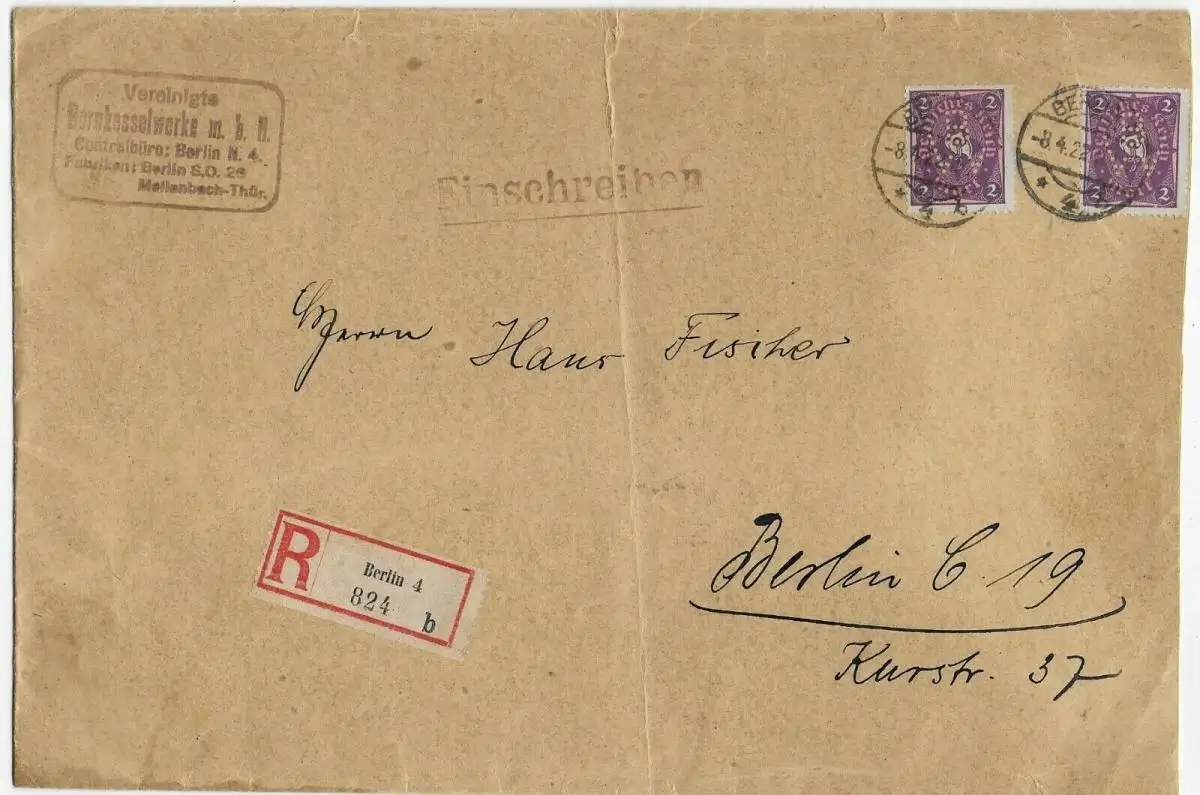 Vereinigte
Bornkesselwerke m. b. H.
Centralbüro: Berlin N. 4.
Fabriken: Berlin S.O. 26
Mellenbach-Thür.
Einschreiben
2 2
Deutsches Reich
2 2
2 2
Deutsches Reich
2 2
-8.4.22
-8.4.22
Herrn Hans Fischer
R
Berlin 4
824
b
Berlin C. 19
Kurstr. 37